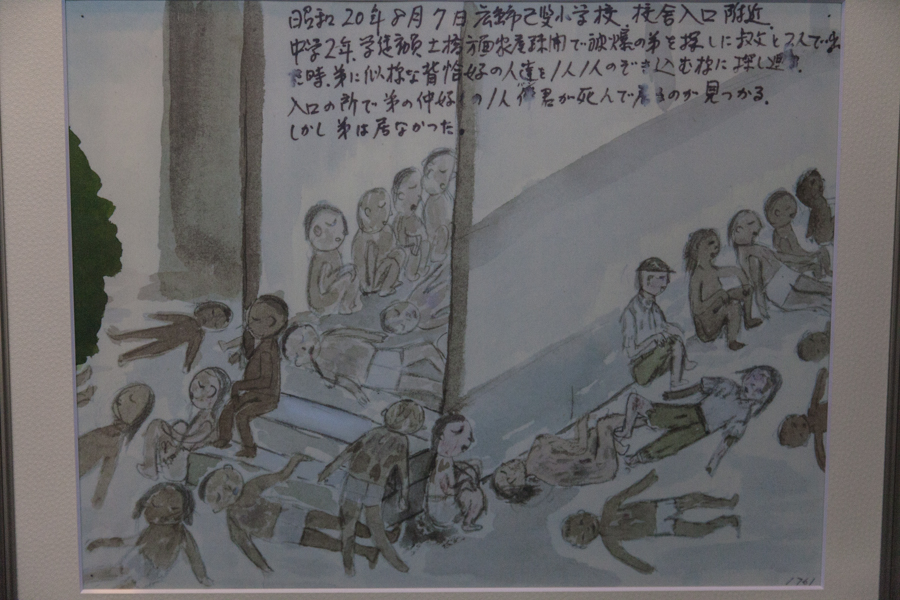 昭和20年8月7日 広島市己斐小学校 校舎入口附近
中学2年 学徒 土橋方面家屋疎開で被爆の弟を探しに叔父と2人で
た時、弟に似た様な背恰好の人達を1人1人のぞき込む様に探し
入口の所で弟の仲好しの1人 君が死んで居るのが見つかる。
しかし弟は居なかった。
1761